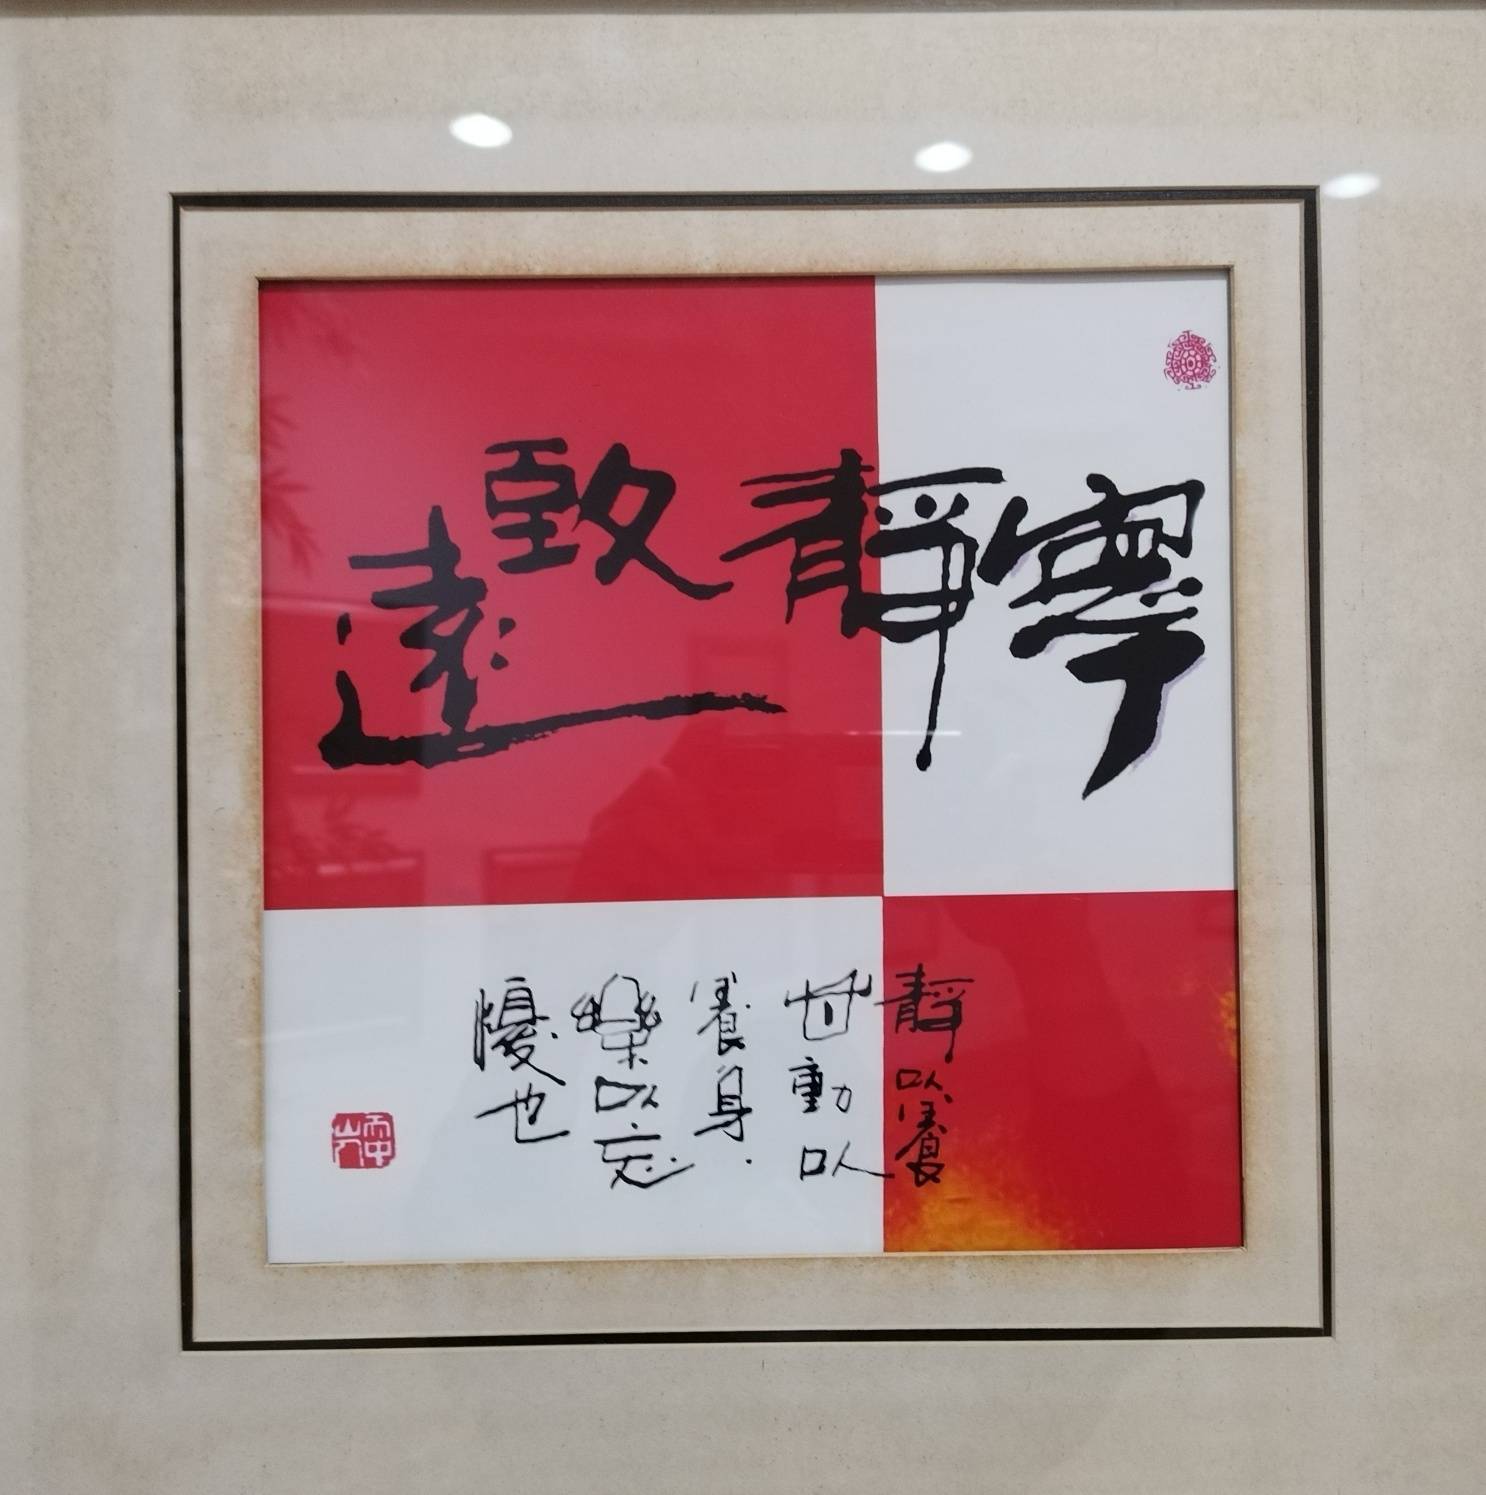 寧靜致遠
靜以養
動以
養身
樂以忘
懮也